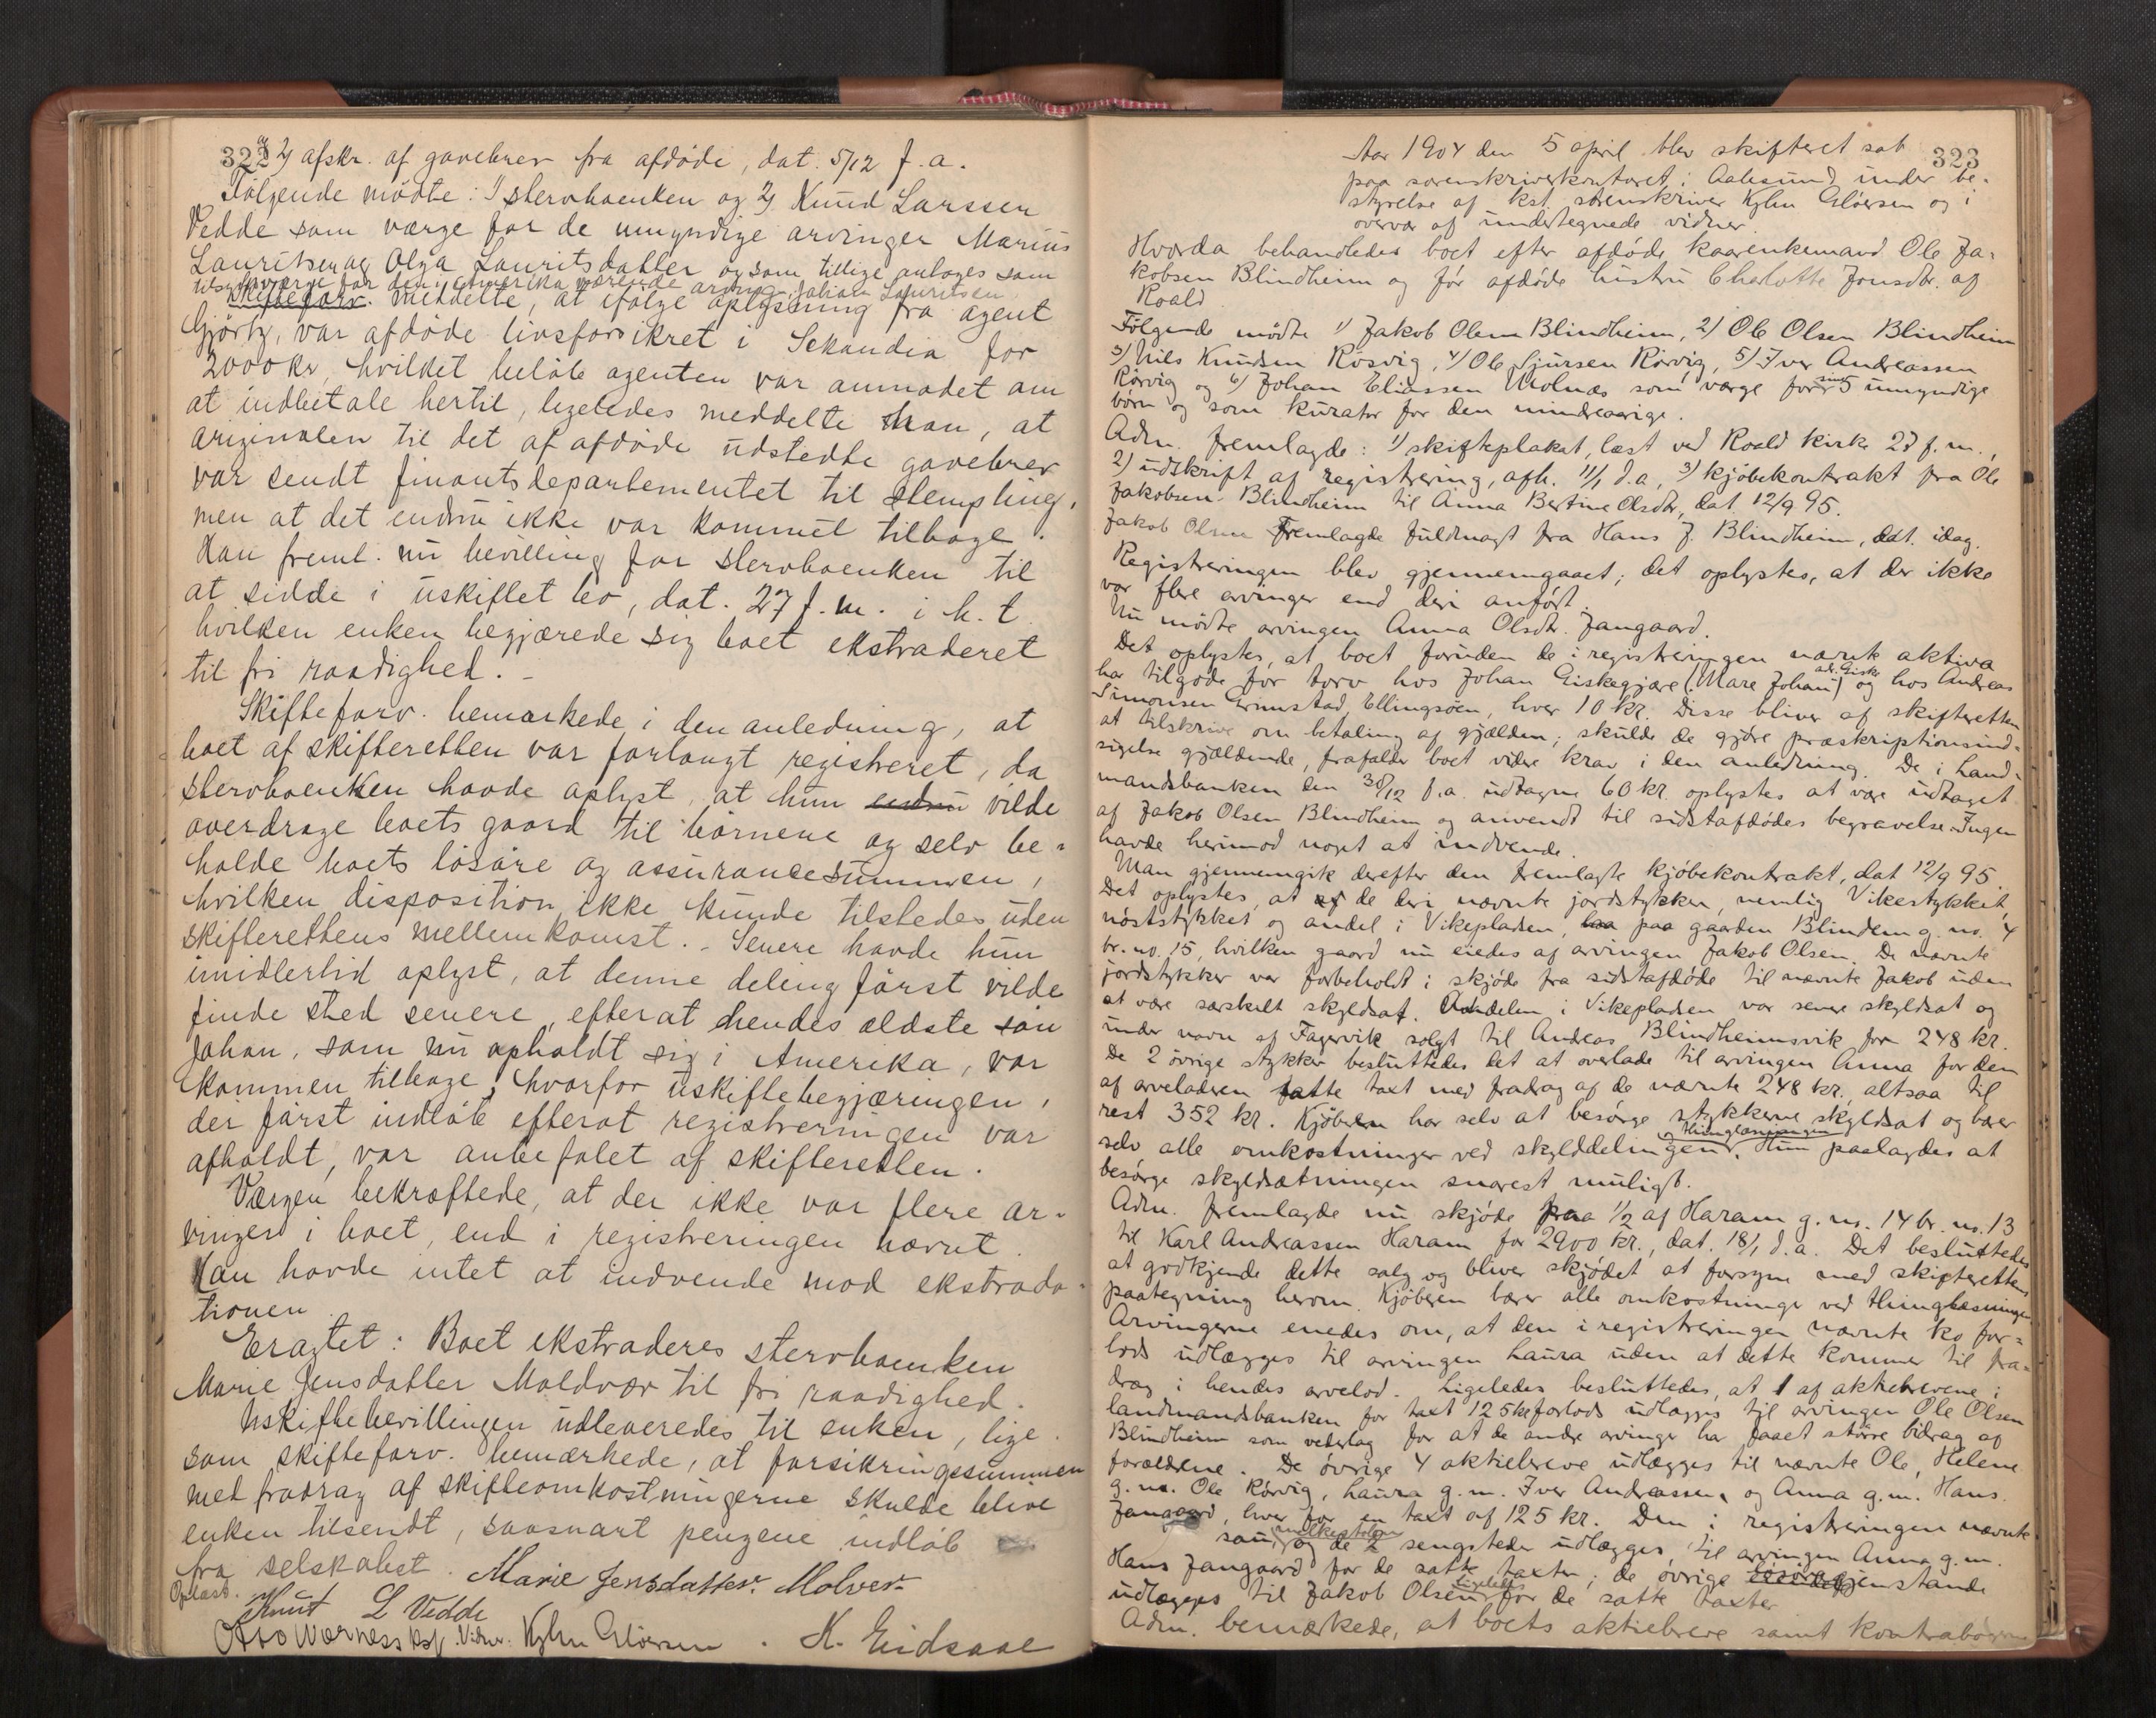 322
og 2) afskr. af gavebrev fra afdøde, dat. 5/12 f. a.
Følgende mødte: 1) stervboenken og 2) Knud Larssen
Vedde som værge for de umyndige arvinger Marius
Lauritsen og Olga Lauritsdatter og som tillige antoges som
tilsynsværge for den i Amerika værende arving Johan Lauritsen.
Skifteforv. meddelte, at ifølge oplysning fra agent
Gjørtz, var afdøde livsforsikret i Skandia for
2000 kr, hvilket beløb agenten var anmodet om
at indbetale hertil, ligeledes meddelte han, at
originalen til det af afdøde udstedte gavebrev
var sendt finantsdepartementet til stempling,
men at det endnu ikke var kommet tilbage.
Han freml. nu bevilling for stervboenken til
at sidde i uskiftet bo, dat. 27 f. m. i h. t.
hvilken enken begjærede sig boet ekstraderet
til fri raadighed. -
Skifteforv. bemærkede i den anledning, at
boet af skifteretten var forlangt registreret, da
stervboenken havde oplyst, at hun endnu vilde
overdrage boets gaard til børnene og selv be-
holde boets løsøre og assurancesummen,
hvilken disposition ikke kunde tilstedes uden
skifterettens mellemkomst. - Senere havde hun
imidlertid oplyst, at denne deling først vilde
finde sted senere, efterat hendes ældste søn
Johan, som nu opholdt sig i Amerika, var
kommen tilbage, hvorfor uskiftebegjæringen,
der først indløb efterat registreringen var
afholdt, var anbefalet af skifteretten.
Værgen bekræftede, at der ikke var flere ar-
vinger i boet, end i registreringen nævnt.
Han havde intet at indvende mod ekstrada-
tionen.
Eragtet: Boet ekstraderes stervboenken
Marie Jensdatter Moldvær til fri raadighed.
Uskiftebevillingen udleveredes til enken, lige-
som skifteforv. bemærkede, at forsikringssummen
med fradrag af skifteomkostningerne skulde blive
enken tilsendt, saasnart pengene indløb
fra selskabet. Marie Jensdatter Molver
Oplæst. Knut L Vedde
Otto Wærness Ksf. Vidner. Kylm Gløersen. K. Eidsaae
323
Aar 1904 den 5 april blev skifteret sat
paa sorenskriverkontoret i Aalesund under be-
styrelse af kst. sorenskriver Kylm Gløersen og i
overvær af undertegnede vidner.
Hvorda behandledes boet efter afdøde kaarenkemand Ole Ja-
kobsen Blindheim og før afdøde hustru Charlotte Jonsdtr. af
Roald
Følgende mødte 1) Jakob Olsen Blindheim, 2) Ole Olsen Blindheim
3) Nils Knudsen Røsvig, 4) Ole Sjursen Rørvig, 5) Iver Andreassen
Rørvig og 6) Johan Eliassen Molnæs som værge for sine 5 umyndige
børn og som kurator for den mindreaarige.
Adm. fremlagde: 1) skifteplakat, læst ved Roald kirke 27 f. m.,
2) udskrift af registrering, afh. 11/1 d. a., 3) kjøbekontrakt fra Ole
Jakobsen Blindheim til Anna Bertine Olsdtr, dat 12/9 95.
Jakob Olsen Fremlagde fuldmagt fra Hans J. Blindheim, dat. idag.
Registreringen blev gjennemgaaet; det oplystes, at der ikke
var flere arvinger end deri anført.
Nu mødte arvingen Anna Olsdtr. Jangaard.
Det oplystes, at boet foruden de i registreringen nævnte aktiva
har tilgode for torv hos Johan Giskegjære (Mare Johan) adr. Giske og hos Andreas
Simonsen Grimstad, Ellingsøen, hver 10 kr. Disse bliver af skifteretten
at tilskrive om betaling af gjælden; skulde de gjøre præskriptionsind-
sigelse gjældende, frafalder boet videre krav i den anledning. De i Land-
mandsbanken den 30/12 f. a. udtagne 60 kr. oplystes at være udtaget
af Jakob Olsen Blindheim og anvendt til sidstafdødes begravelse. Ingen
havde herimod noget at indvende.
Man gjennemgik derefter den fremlagte kjøbekontrakt, dat 12/9 95.
Det oplystes, at af de deri nævnte jordstykker, nemlig Vikestykket,
nøststykket og andel i Vikepladsen, laa paa gaarden Blindem g. no. 4
br. no. 15, hvilken gaard nu eiedes af arvingen Jakob Olsen. De nævnte
jordstykker var forbeholdt i skjøde fra sidstafdøde til nævnte Jakob uden
at være særskilt skyldsat. Andelen i Vikepladsen var senere skyldsat og
under navn af Fagervik solgt til Andreas Blindheimsvik for 248 kr.
De 2 øvrige stykker besluttedes det at overlade til arvingen Anna for den
af arveladeren satte taxt med fradrag af de nævnte 248 kr., altsaa til
rest 352 kr. Kjøberen har selv at besørge stykkerne skyldsat og bærer
selv alle omkostninger ved skylddelingen og thinglæsningen. Hun paalagdes at
besørge skyldsætningen snarest muligt.
Adm. fremlagde nu skjøde paa 1/2 af Haram g. no. 14 br. no. 13
til Karl Andreassen Haram for 2900 kr., dat. 18/1 d. a. Det besluttedes
at godkjende dette salg og bliver skjødet at forsyne med skifterettens
paategning herom. Kjøberen bærer alle omkostninger ved thinglæsningen
Arvingerne enedes om, at den i registreringen nævnte ko for-
lods udlægges til arvingen Laura uden at dette kommer til fra-
drag i hendes arvelod. Ligeledes besluttedes, at 1 af aktiebrevene i
landmandsbanken for taxt 125 kr forlods udlægges til arvingen Ole Olsen
Blindheim som vederlag for at de andre arvinger har faaet større bidrag af
forældrene. De øvrige 4 aktiebreve udlægges til nævnte Ole, Helene
g. m. Ole Rørvig, Laura g. m. Iver Andreassen, og Anna g. m. Hans
Jangaard, hver for en taxt af 125 kr. Den i registreringen nævnte
sau, melkestolen og de 2 sengsteder udlægges til arvingen Anna g. m.
Hans Jangaard for de satte taxter; de øvrige løsøregjenstande
udlægges til Jakob Olsen ligeledes for de satte taxter
Adm. bemærkede, at boets aktiebreve samt kontrabøgerne